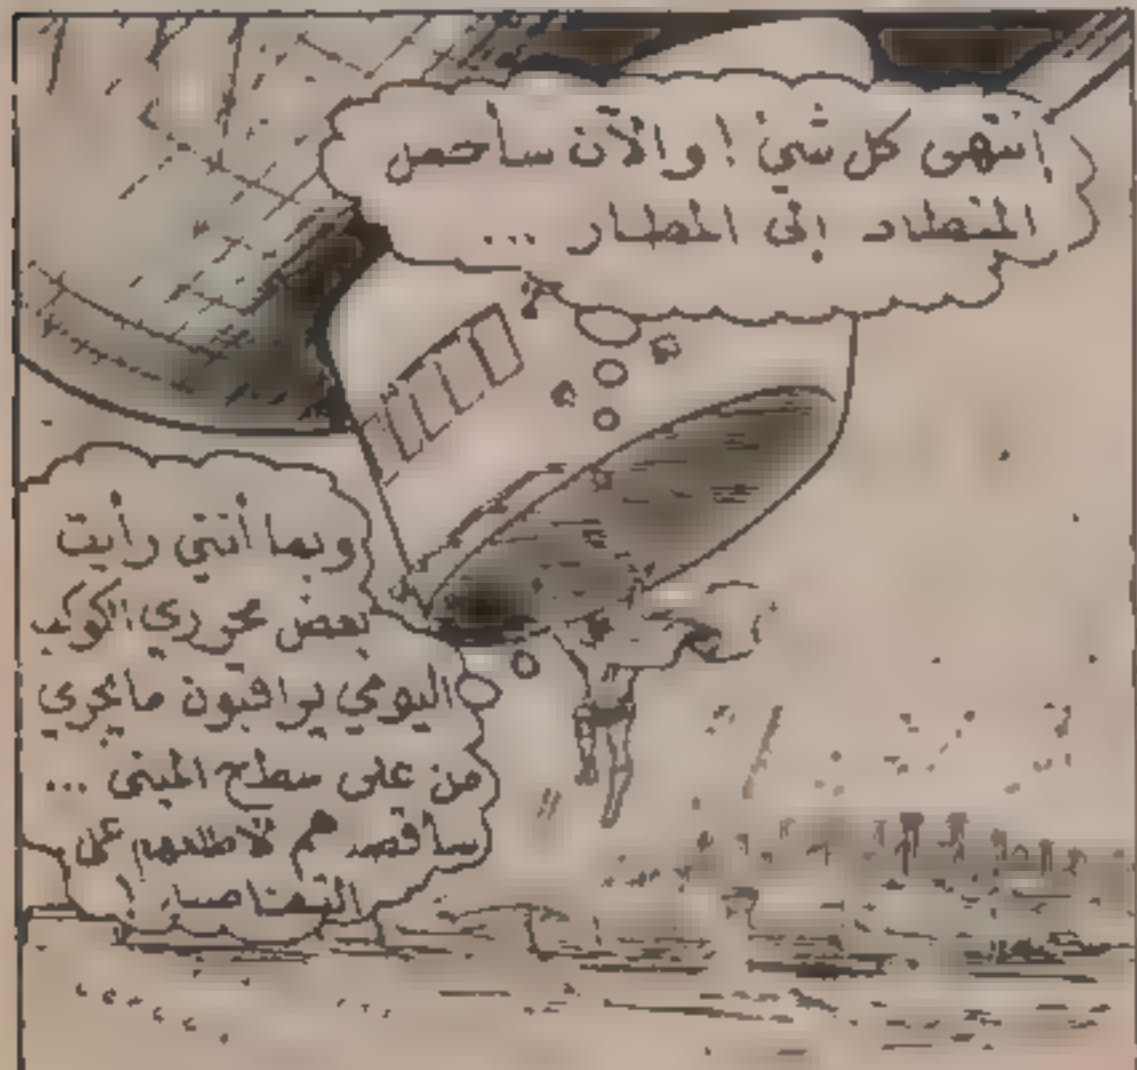 انتهى كل شئ ! والآن سأحمل
المنطاد الى المطار ...
وبما أنني رأيت
بعض محرري الكوكب
اليومي يراقبون ما يجري
من على سطح المبنى ...
سأقصدهم لأطلعهم على
التفاصيل !